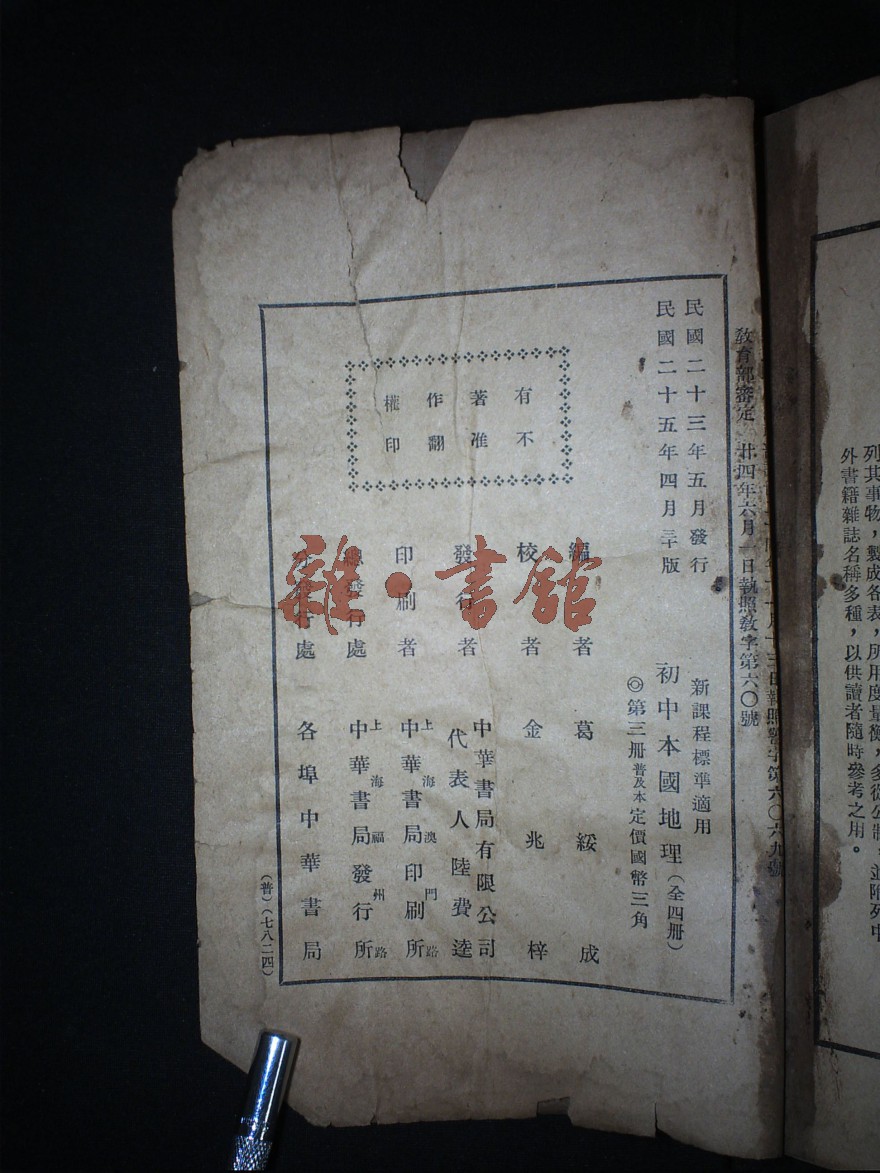 列其事物，製成各表，所用度量衡，多從公制，並附列中
外書籍雜誌名稱多種，以供讀者隨時參考之用。
教育部審定
廿四年六月一日執照教字第六〇號
民國二十三年五月發行
民國二十五年四月三版
新課程標準適用
初中本國地理（全四冊）
◎第三冊普及本定價國幣三角
有不
著准
作翻
權印
編者 葛綏成
校者 金兆梓
發行者 中華書局有限公司
代表人陸費逵
印刷者 上海澳門路
中華書局印刷所
總發行處 上海福州路
中華書局發行所
分發行處 各埠中華書局
（普）（七八二四）
雜·書館